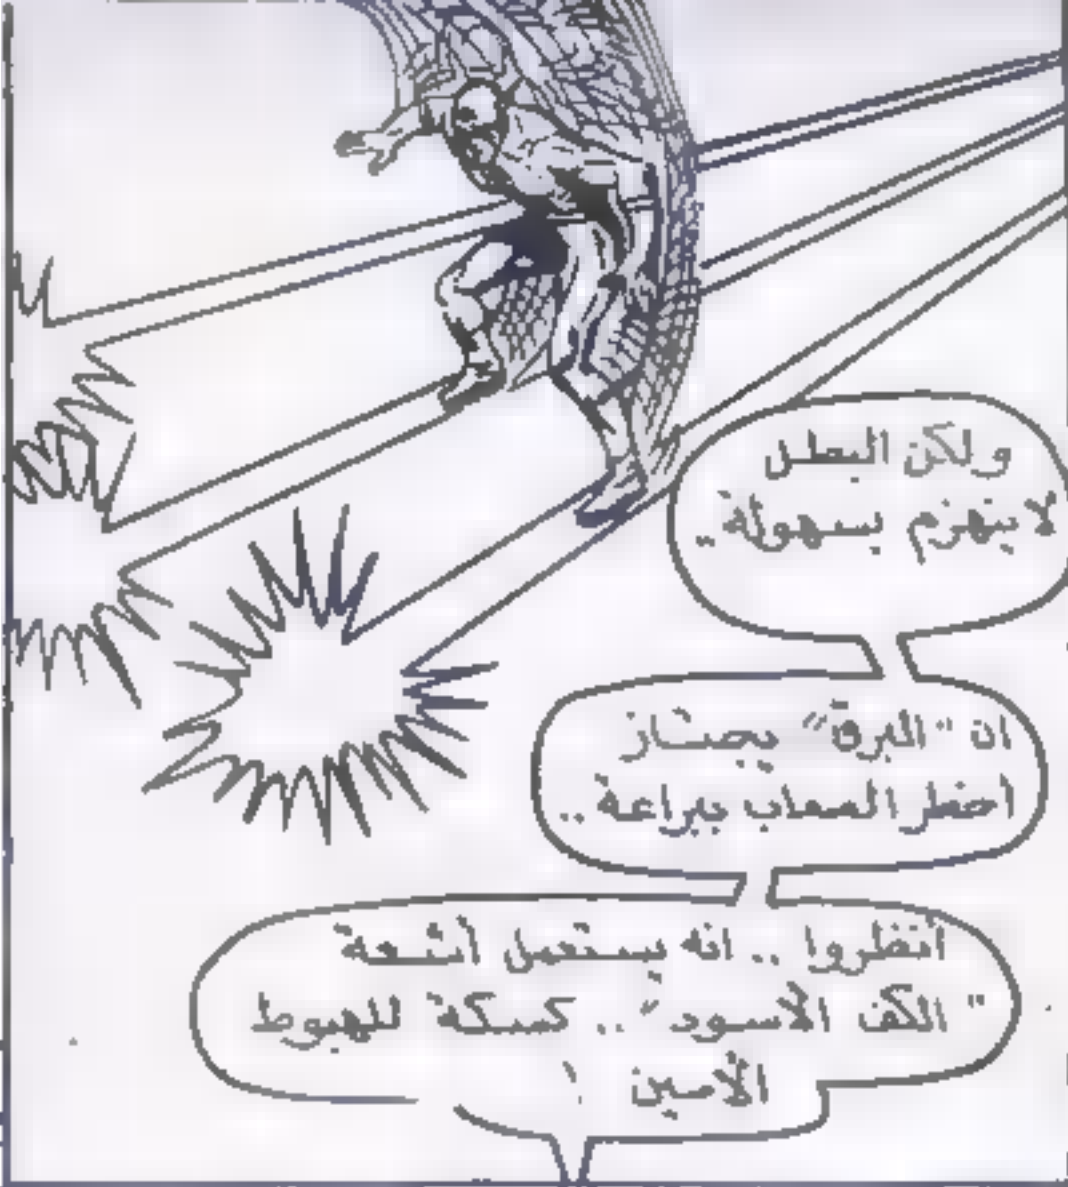 ولكن البطل
لا ينهزم بسهولة ..
ان "البرق" يجتاز
أخطر الصعاب ببراعة ..
أنظروا .. انه يستعمل أشعة
"الكف الأسود" .. كسكة للهبوط
الأمين !